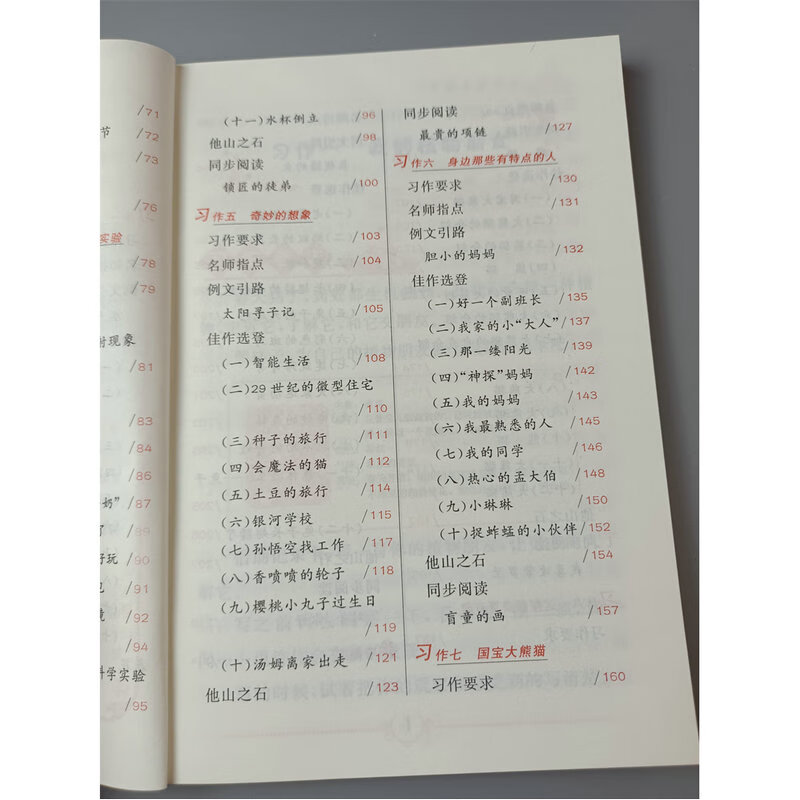 /71
节 /72
/73
/76
实验
/78
/79
射现象
/81
/83
/84
/86
奶” /87
了 /89
好玩 /90
/91
境 /92
/94
科学实验
/95
(十一)水杯倒立 /96
他山之石 /98
同步阅读
锁匠的徒弟 /100
习作五 奇妙的想象
习作要求 /103
名师指点 /104
例文引路
太阳寻子记 /105
佳作选登
(一)智能生活 /108
(二)29世纪的微型住宅
/110
(三)种子的旅行 /111
(四)会魔法的猫 /112
(五)土豆的旅行 /114
(六)银河学校 /115
(七)孙悟空找工作 /117
(八)香喷喷的轮子 /118
(九)樱桃小丸子过生日
/119
(十)汤姆离家出走 /121
他山之石 /123
同步阅读
最贵的项链 /127
习作六 身边那些有特点的人
习作要求 /130
名师指点 /131
例文引路
胆小的妈妈 /132
佳作选登
(一)好一个副班长 /135
(二)我家的小“大人” /137
(三)那一缕阳光 /139
(四)“神探”妈妈 /142
(五)我的妈妈 /143
(六)我最熟悉的人 /145
(七)我的同学 /146
(八)热心的孟大伯 /148
(九)小琳琳 /150
(十)捉蚱蜢的小伙伴 /152
他山之石 /154
同步阅读
盲童的画 /157
习作七 国宝大熊猫
习作要求 /160
1